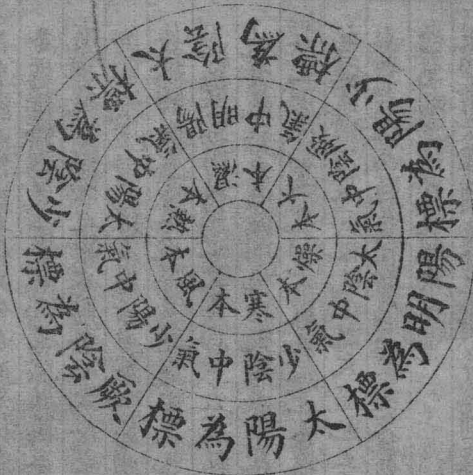 太陽為標
陽明為標
少陽為標
太陰為標
少陰為標
厥陰為標
少陰中氣
太陰中氣
厥陰中氣
陽明中氣
太陽中氣
少陽中氣
寒本
燥本
火本
濕本
熱本
風本